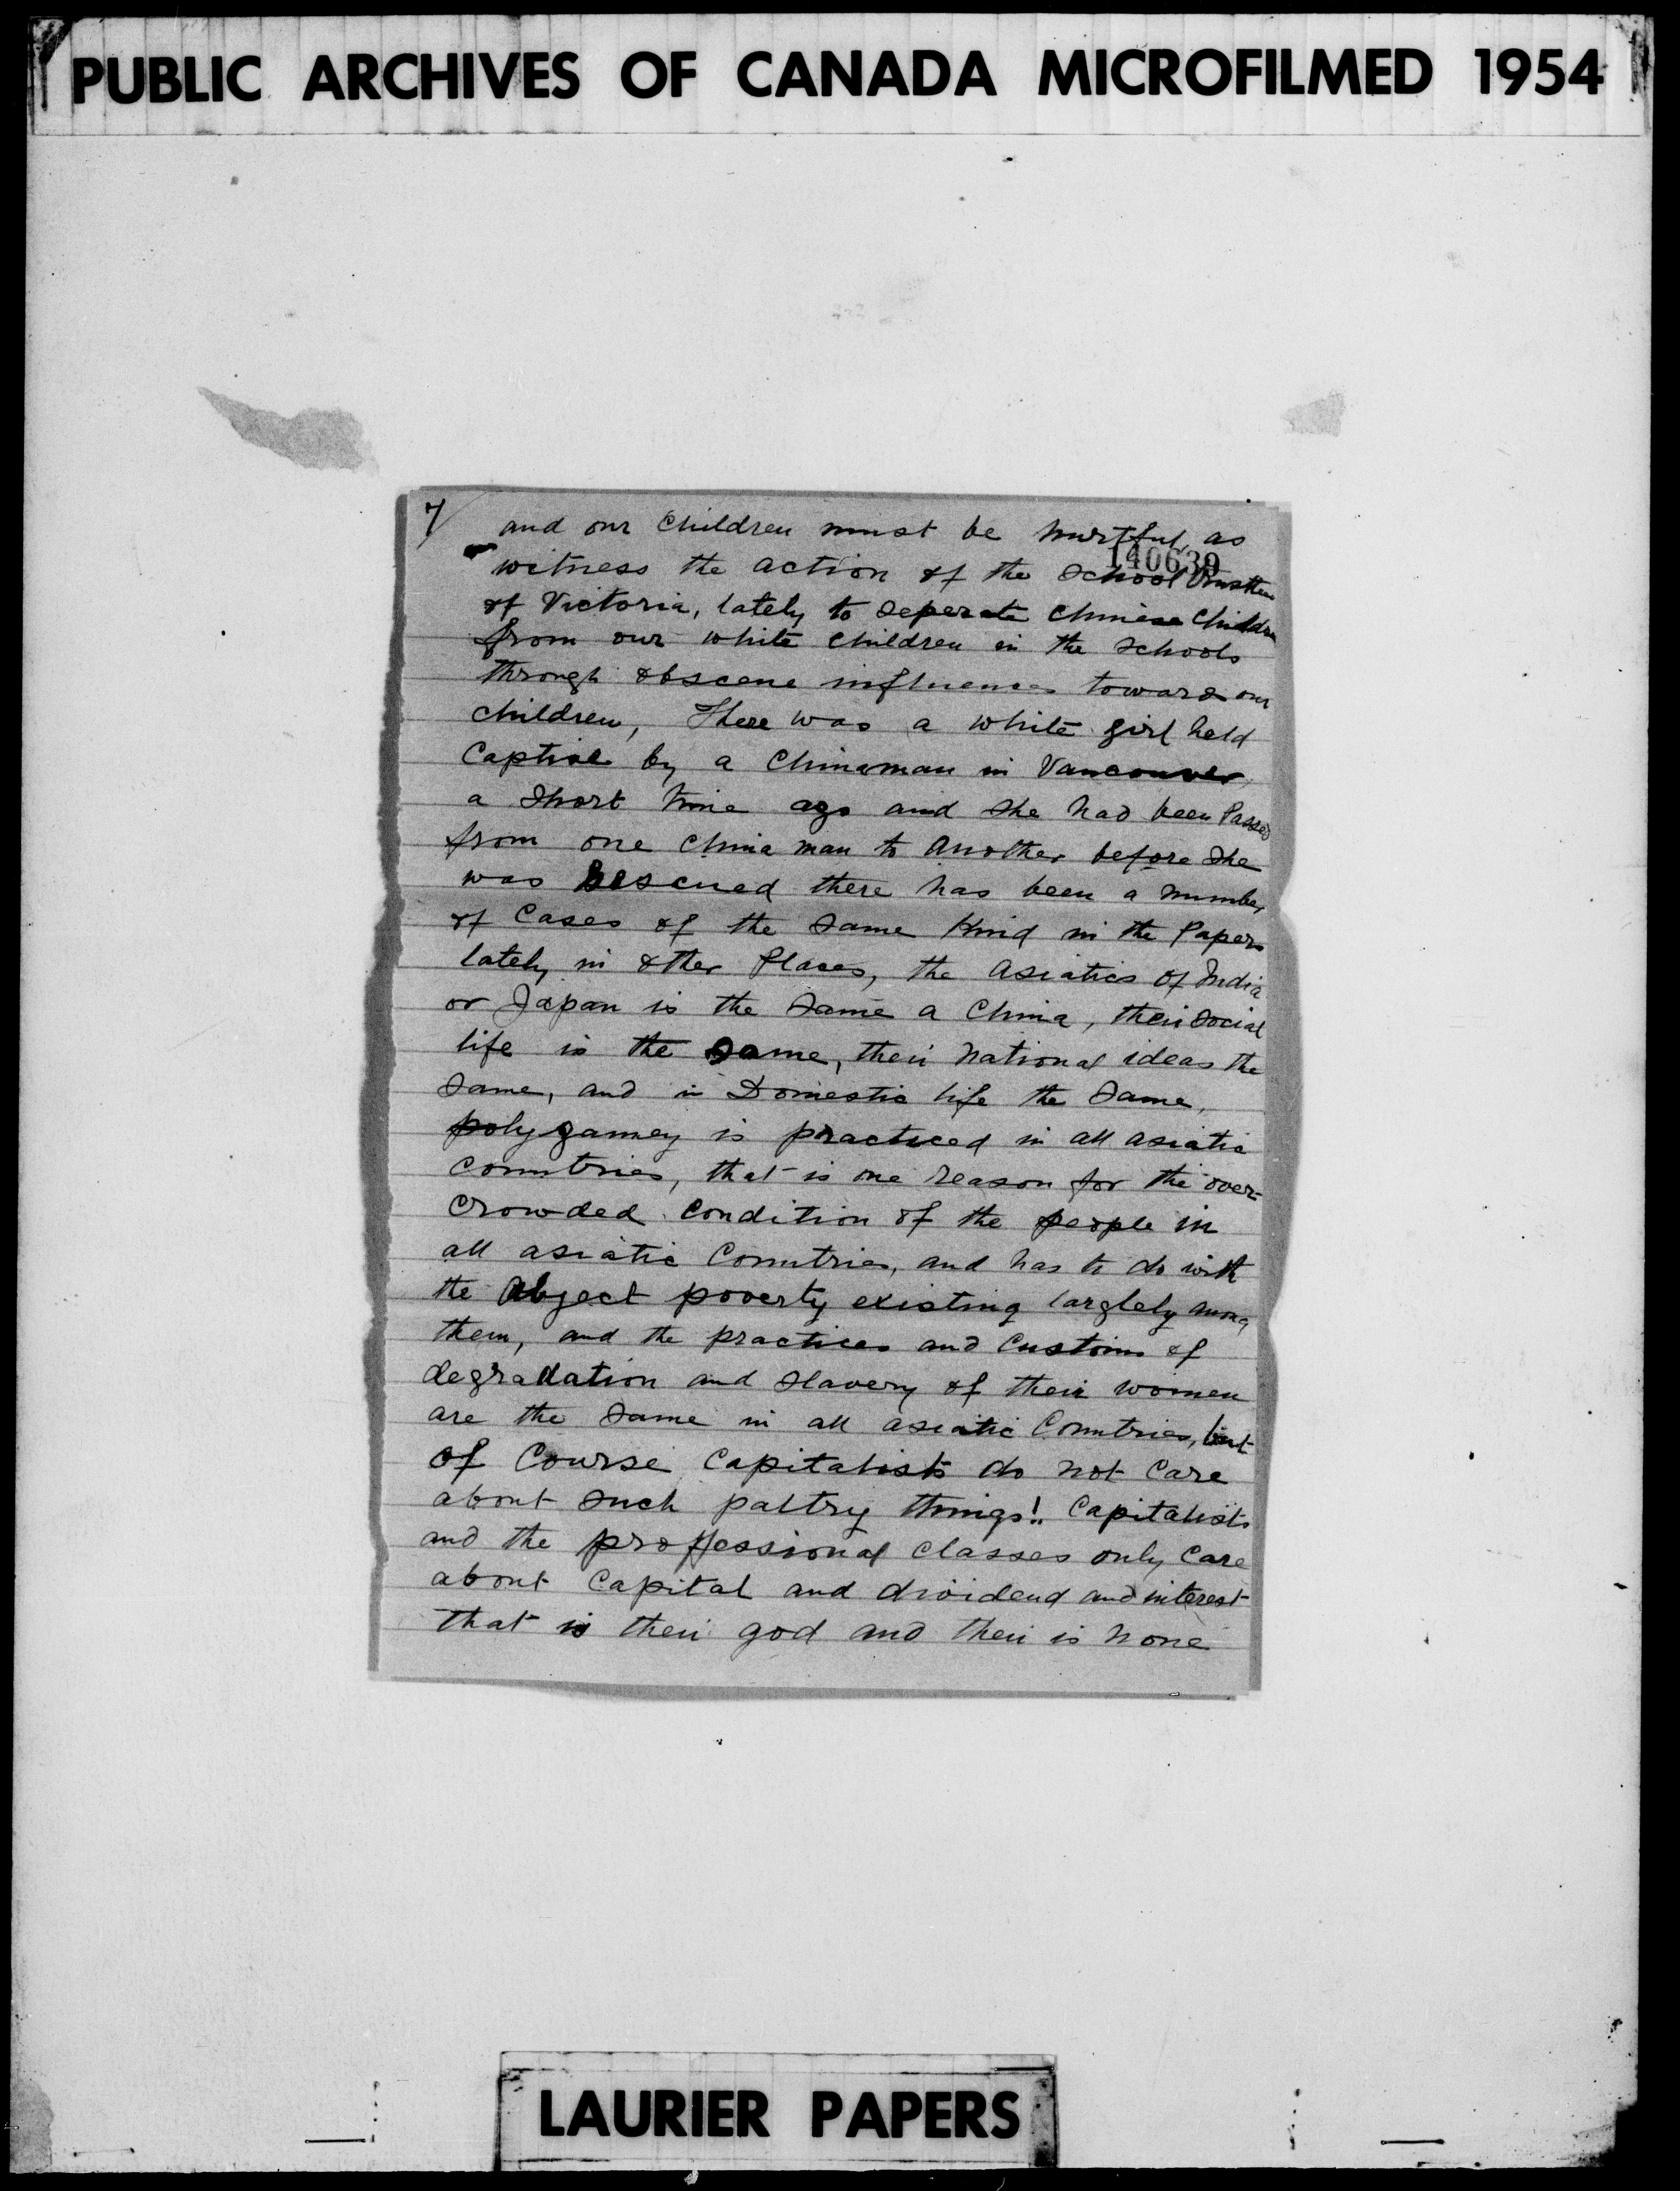 PUBLIC ARCHIVES OF CANADA MICROFILMED 1954
7/ and our Children must be hurtful, as
140639
witness the action of the School Trustees
of Victoria, lately to seperate Chinese Children
from our white children in the schools
through obscene influences towards our
children, There was a white girl held
Captive by a Chinaman in Vancouver,
a short time ago and she had been Passed
from one China man to another before she
was Rescued there has been a number
of Cases of the same kind in the Papers
lately in other Places, the asiatics of India
or Japan is the same a China, their social
life is the same, their national ideas the
same, and in Domestic life the same,
polygamey is practiced in all asiatic
Countries, that is one reason for the over-
crowded condition of the people in
all asiatic Countries, and has to do with
the abject poverty existing larglely among
them, and the practices and Customs of
degradation and slavery of their women
are the same in all asiatic Countries, but
of Course Capitalists do not Care
about such paltry things!! Capitalists
and the proffessional classes only Care
about Capital and dividend and interest
that is their god and their is none
LAURIER PAPERS